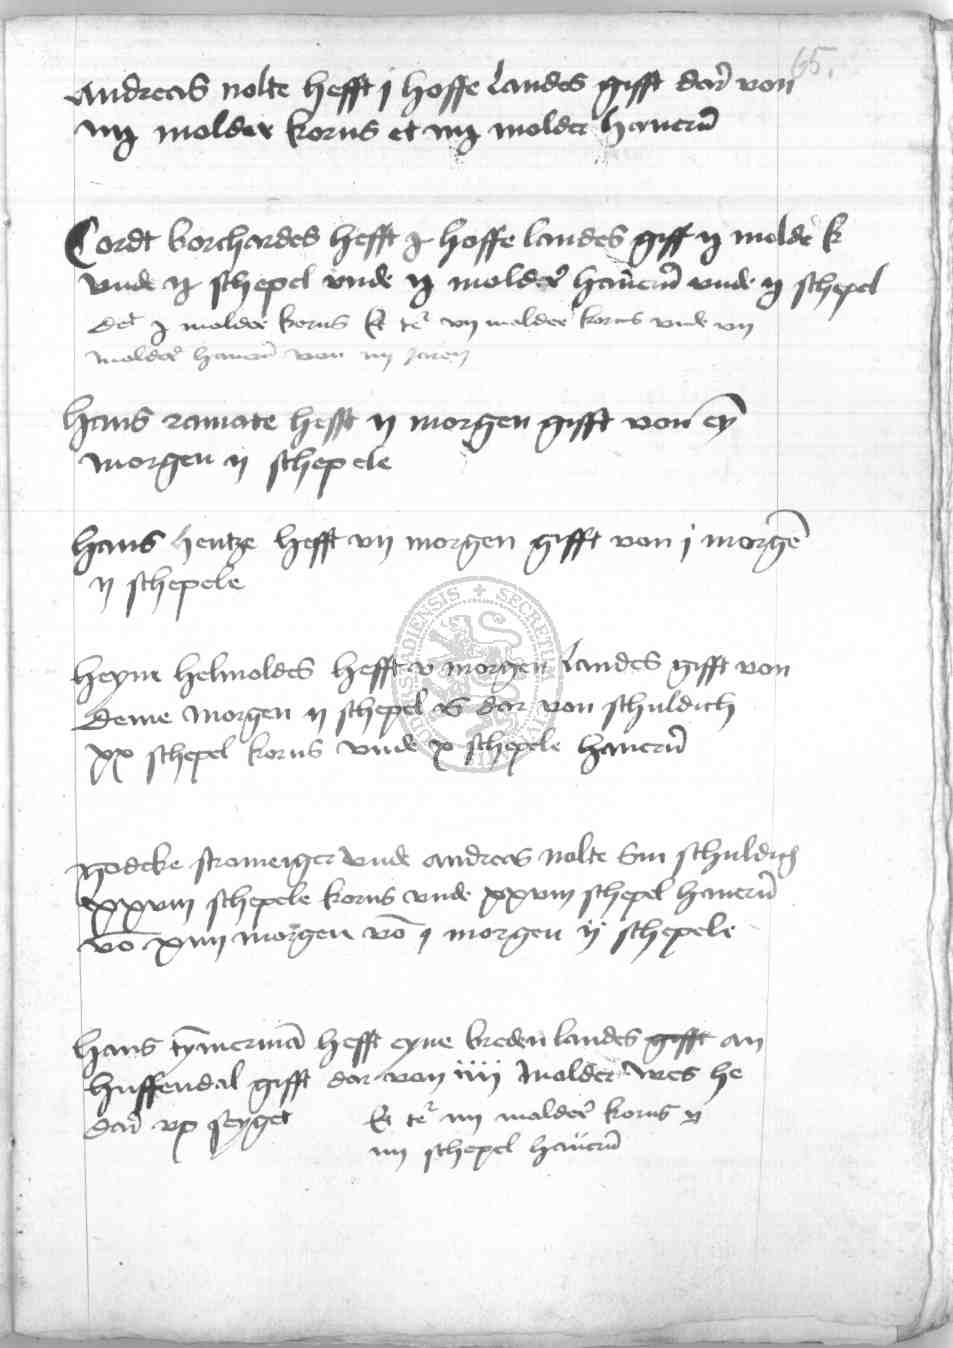 65.
Andreas nolte hefft j hoffe landes gifft dar von
iiij molder korns et iiij molder haueru
Cordt borchardes hefft hoffe landes giff ij molde k
vnde ij schepel vnde ij molder haueru vnde ij schepel
molder korns vij molder korns vnde vij
molder haueru von iij jaren
hans ramate hefft ij morgen gifft von ey
morgen ij schepele
hans hentze hefft vij morgen gifft von j morge
ij schepele
heyne helmoldes hefft v morgen landes gifft von
deme morgen ij schepel is dar von schuldich
xx schepel korns vnde x schepele haueru
stromeiger vnde andreas nolte sin schuldich
xxviij schepele korns vnde xxviij schepel haueru
vo xiiij morgen vo j morgen ij schepele
hans tymerma hefft eyne breden landes gifft an
huffendal gifft dar von iiij molder wes he
dar vp seyget
iiij molder korns
iiij schepel haueru
SECRETUM